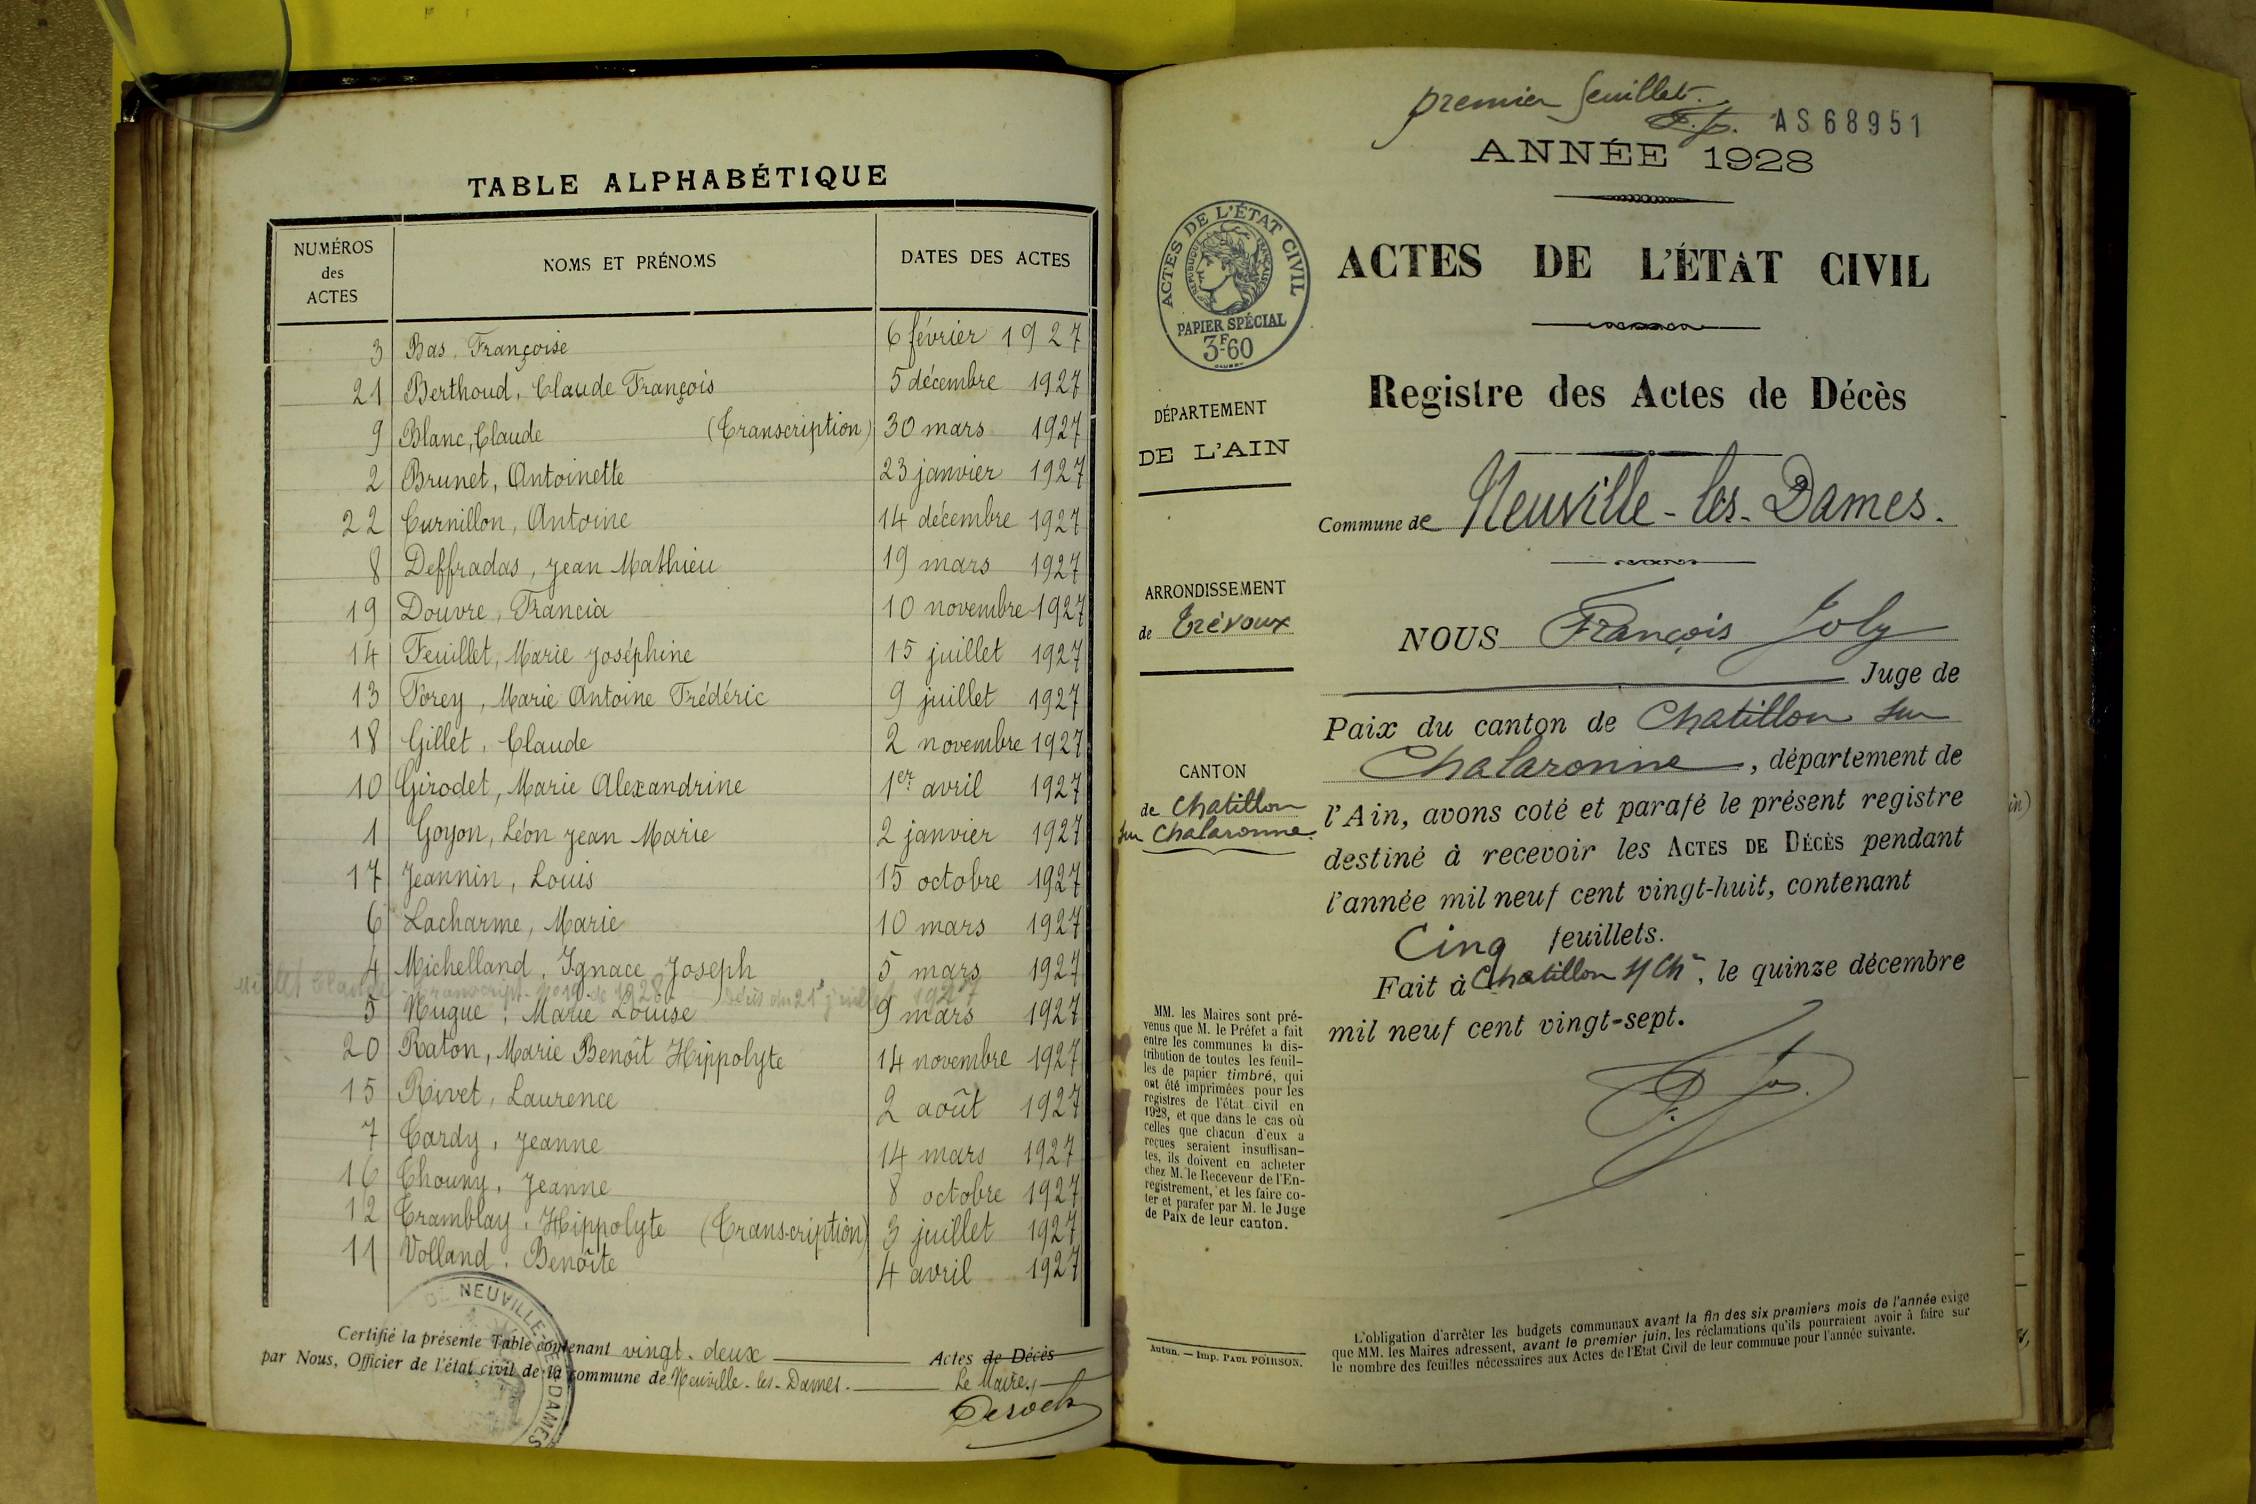 TABLE ALPHABÉTIQUE
NUMÉROS des ACTES NOMS ET PRÉNOMS DATES DES ACTES
3 Bas, Françoise 6 février 1927
21 Berthoud, Claude François 5 décembre 1927
9 Blanc, Claude (Transcription) 30 mars 1927
2 Brunet, Antoinette 23 janvier 1927
22 Curnillon, Antoine 14 décembre 1927
8 Deffradas, Jean Mathieu 19 mars 1927
19 Douvre, Francia 10 novembre 1927
14 Feuillet, Marie Joséphine 15 juillet 1927
13 Forey, Marie Antoine Frédéric 9 juillet 1927
18 Gillet, Claude 2 novembre 1927
10 Girodet, Marie Alexandrine 1er avril 1927
1 Goyon, Léon Jean Marie 2 janvier 1927
17 Jeannin, Louis 15 octobre 1927
6 Lacharme, Marie 10 mars 1927
4 Michelland, Ignace Joseph 5 mars 1927
Millet Claude transcript. n° 19 de 1928 Décès du 21 juillet 1927
5 Nugue, Marie Louise 9 mars 1927
20 Raton, Marie Benoît Hippolyte 14 novembre 1927
15 Rivet, Laurence 2 août 1927
7 Tardy, Jeanne 14 mars 1927
16 Thouny, Jeanne 8 octobre 1927
12 Tramblay, Hippolyte (Transcription) 3 juillet 1927
11 Volland, Benoîte 4 avril 1927
DE NEUVILLE-LES-DAMES
Certifié la présente Table contenant vingt-deux Actes de Décès
par Nous, Officier de l'état civil de la commune de Neuville-les-Dames. Le Maire,
premier feuillet.
F. Jy. AS68951
ANNÉE 1928
ACTES DE L'ÉTAT CIVIL
RÉPUBLIQUE FRANÇAISE
PAPIER SPÉCIAL
3F-60
ACTES DE L'ÉTAT CIVIL
Registre des Actes de Décès
DÉPARTEMENT
DE L'AIN
Commune de Neuville-les-Dames.
ARRONDISSEMENT
de Trévoux
NOUS François Joly
Juge de
Paix du canton de Chatillon sur
Chalaronne, département de
CANTON
de Chatillon
sur Chalaronne.
l'Ain, avons coté et parafé le présent registre
destiné à recevoir les ACTES DE DÉCÈS pendant
l'année mil neuf cent vingt-huit, contenant
Cinq feuillets.
Fait à Chatillon s/ Chne, le quinze décembre
mil neuf cent vingt-sept.
MM. les Maires sont pré-
venus que M. le Préfet a fait
entre les communes la dis-
tribution de toutes les feuil-
les de papier timbré, qui
ont été imprimées pour les
registres de l'état civil en
1928, et que dans le cas où
celles que chacun d'eux a
reçues seraient insuffisan-
tes, ils doivent en acheter
chez M. le Receveur de l'En-
registrement, et les faire co-
ter et parafer par M. le Juge
de Paix de leur canton.
Autun. — Imp. PAUL POIRSON.
L'obligation d'arrêter les budgets communaux avant la fin des six premiers mois de l'année exige
que MM. les Maires adressent, avant le premier juin, les réclamations qu'ils pourraient avoir à faire sur
le nombre des feuilles nécessaires aux Actes de l'Etat Civil de leur commune pour l'année suivante.